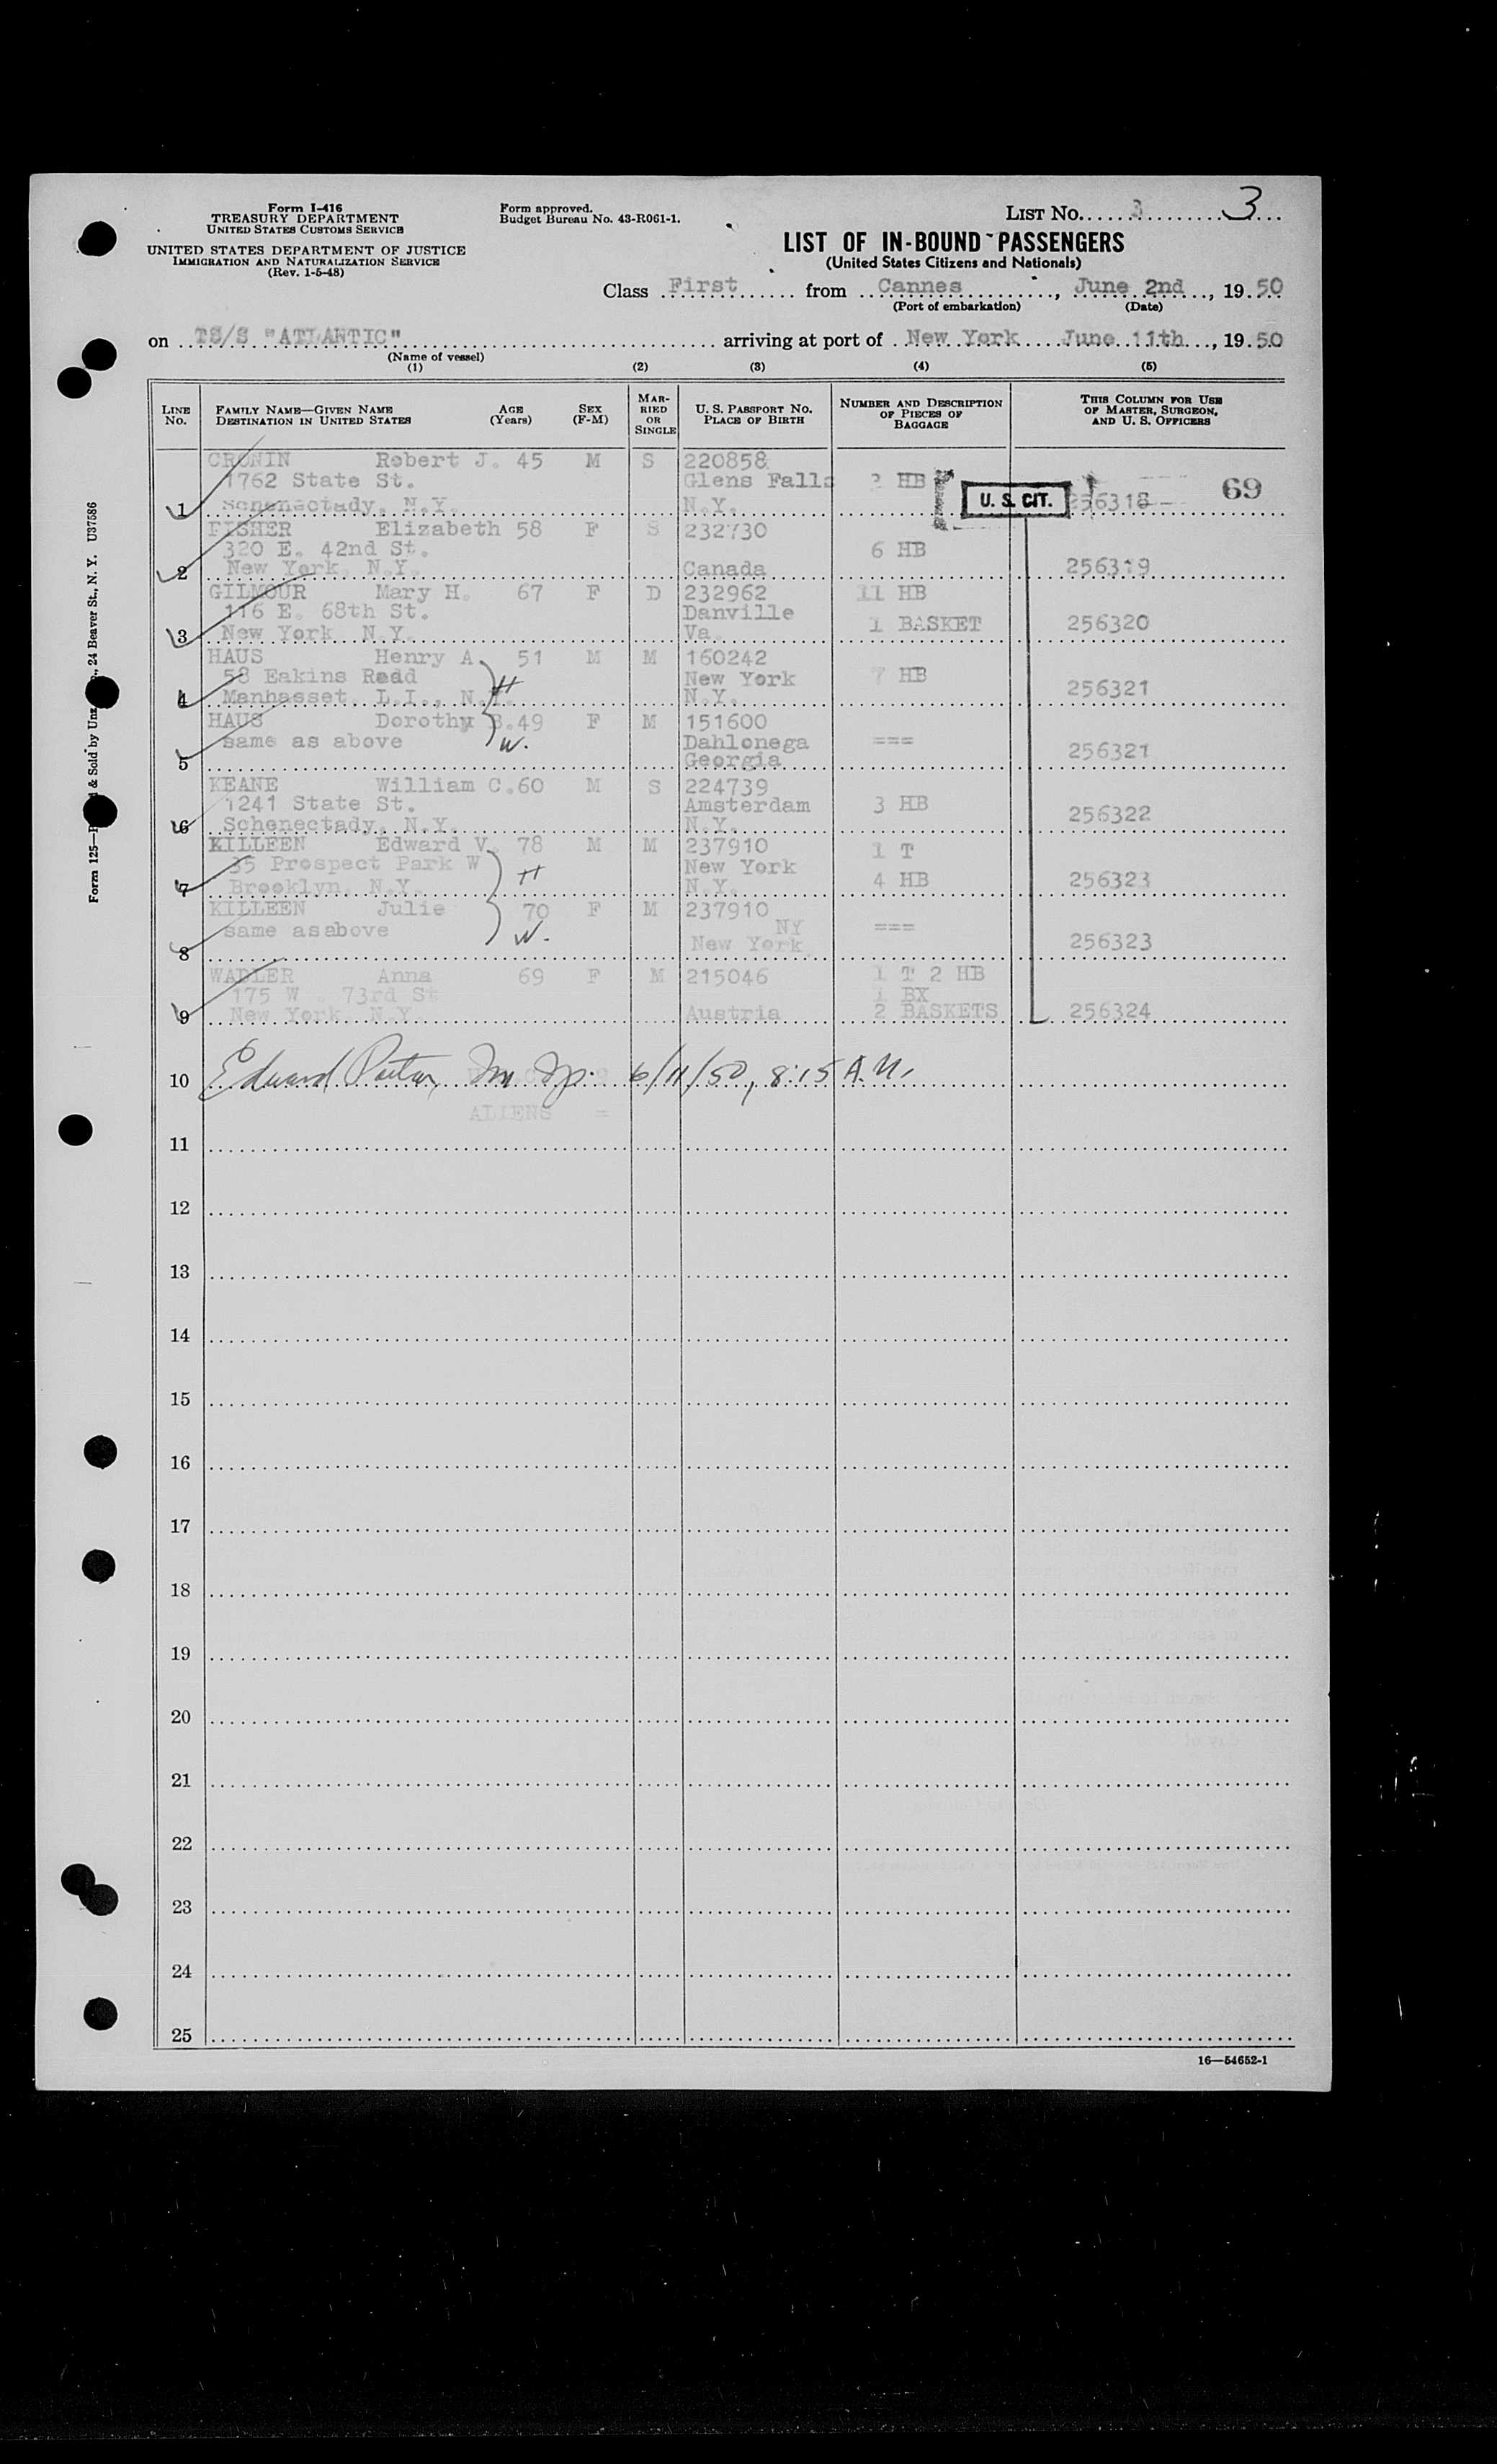 Form I-416
TREASURY DEPARTMENT
UNITED STATES CUSTOMS SERVICE
UNITED STATES DEPARTMENT OF JUSTICE
IMMIGRATION AND NATURALIZATION SERVICE
(Rev. 1-5-48)
Form approved.
Budget Bureau No. 43-R061-1.
LIST No. 3 3
LIST OF IN-BOUND PASSENGERS
(United States Citizens and Nationals)
Class First from Cannes, June 2nd, 1950
(Port of embarkation) (Date)
on TS/S "ATLANTIC" arriving at port of New York June 11th, 1950
(Name of vessel)
(1) (2) (3) (4) (5)
LINE No. FAMILY NAME—GIVEN NAME DESTINATION IN UNITED STATES AGE (Years) SEX (F-M) MARRIED OR SINGLE U. S. PASSPORT No. PLACE OF BIRTH NUMBER AND DESCRIPTION OF PIECES OF BAGGAGE THIS COLUMN FOR USE OF MASTER, SURGEON, AND U. S. OFFICERS
CRONIN Robert J. 45 M S 220858
1762 State St. Glens Falls HB U. S. CIT. 256318 69
1 Schenectady, N.Y. N.Y.
FISHER Elizabeth 58 F S 232730
320 E. 42nd St. 6 HB
2 New York, N.Y. Canada 256319
GILMOUR Mary H. 67 F D 232962 11 HB
116 E. 68th St. Danville
3 New York N.Y. Va. 1 BASKET 256320
HAUS Henry A. 51 M M 160242
58 Eakins Road New York 7 HB
4 Manhasset, L.I., N.Y. H N.Y. 256321
HAUS Dorothy B. 49 F M 151600
same as above W. Dahlonega === 256321
5 Georgia
KEANE William C. 60 M S 224739
1241 State St. Amsterdam 3 HB
6 Schenectady, N.Y. N.Y. 256322
KILLEEN Edward V. 78 M M 237910 1 T
35 Prospect Park W H New York
7 Brooklyn, N.Y. N.Y. 4 HB 256323
KILLEEN Julie 70 F M 237910
same asabove W. NY ===
8 New York 256323
WADLER Anna 69 F M 215046 1 T 2 HB
175 W. 73rd St 1 BX
9 New York N.Y. Austria 2 BASKETS 256324
10 Edward 6/11/50, 8:15 A.M.
ALIENS =
11
12
13
14
15
16
17
18
19
20
21
22
23
24
25
16—54652-1
Form 125— & Sold by Unz , 24 Beaver St., N. Y. U37586